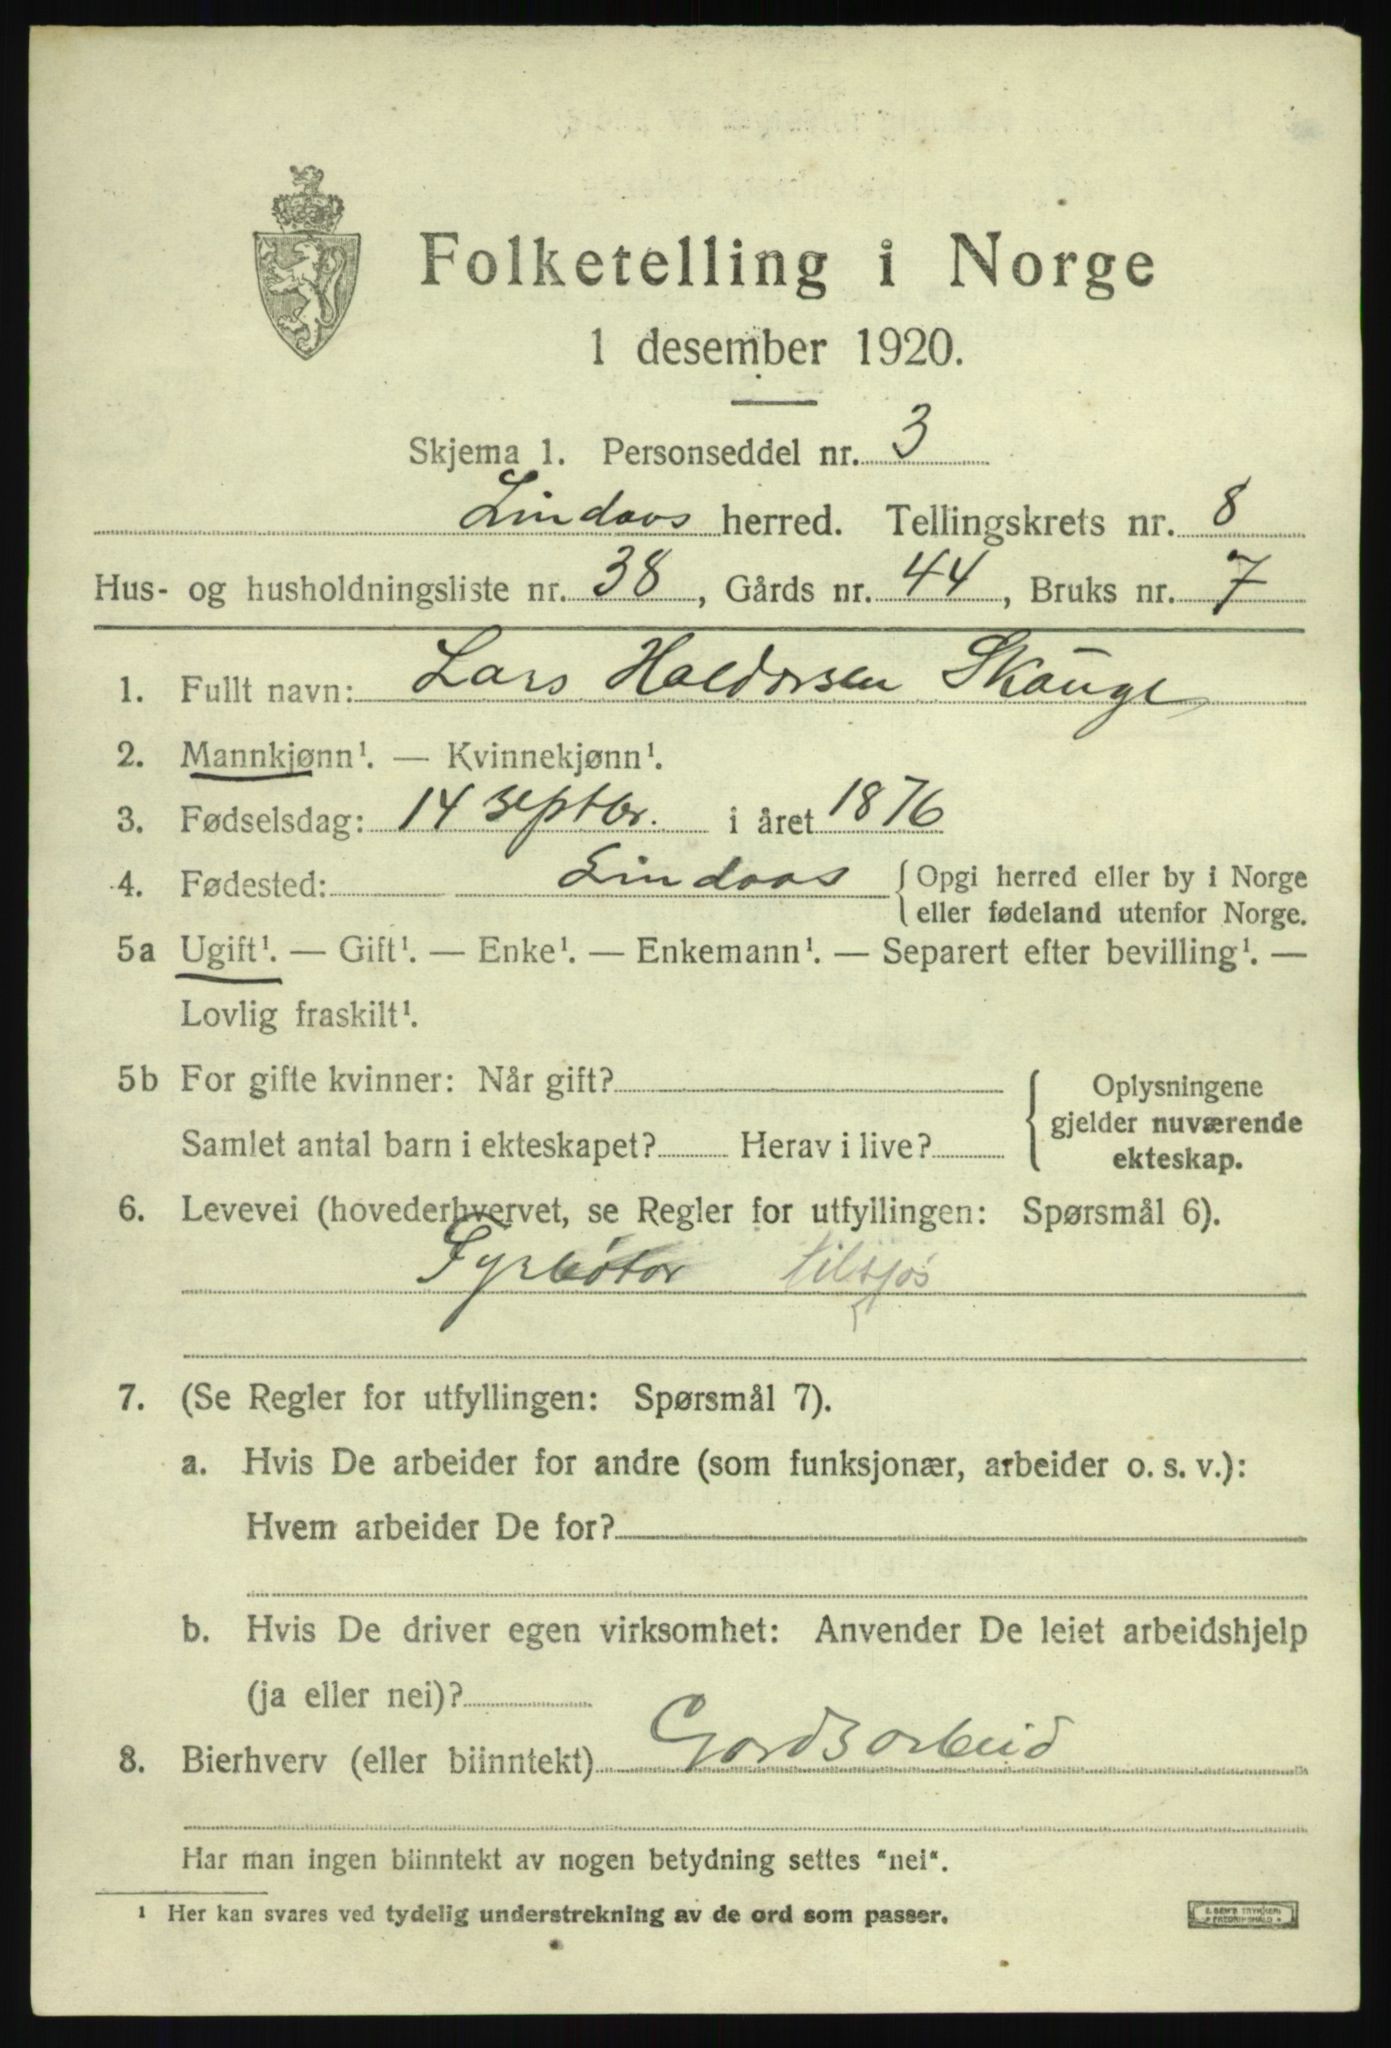 Folketelling i Norge
1 desember 1920.
Skjema 1. Personseddel nr. 3
Lindaas herred. Tellingskrets nr. 8
Hus- og husholdningsliste nr. 38, Gårds nr. 44, Bruks nr. 7
1. Fullt navn: Lars Haldorsen Skauge
2. Mannkjønn¹. — Kvinnekjønn¹.
3. Fødselsdag: 14 septbr. i året 1876
4. Fødested: Lindaas { Opgi herred eller by i Norge
eller fødeland utenfor Norge.
5a Ugift¹. — Gift¹. — Enke¹. — Enkemann¹. — Separert efter bevilling¹. —
Lovlig fraskilt¹.
5b For gifte kvinner: Når gift?
Samlet antal barn i ekteskapet? Herav i live?
{ Oplysningene
gjelder nuværende
ekteskap.
6. Levevei (hovederhvervet, se Regler for utfyllingen: Spørsmål 6).
Fyrbøtar tilsjøs
7. (Se Regler for utfyllingen: Spørsmål 7).
a. Hvis De arbeider for andre (som funksjonær, arbeider o. s. v.):
Hvem arbeider De for?
b. Hvis De driver egen virksomhet: Anvender De leiet arbeidshjelp
(ja eller nei)?
8. Bierhverv (eller biinntekt) Gardsarbeid
Har man ingen biinntekt av nogen betydning settes "nei".
¹ Her kan svares ved tydelig understrekning av de ord som passer.